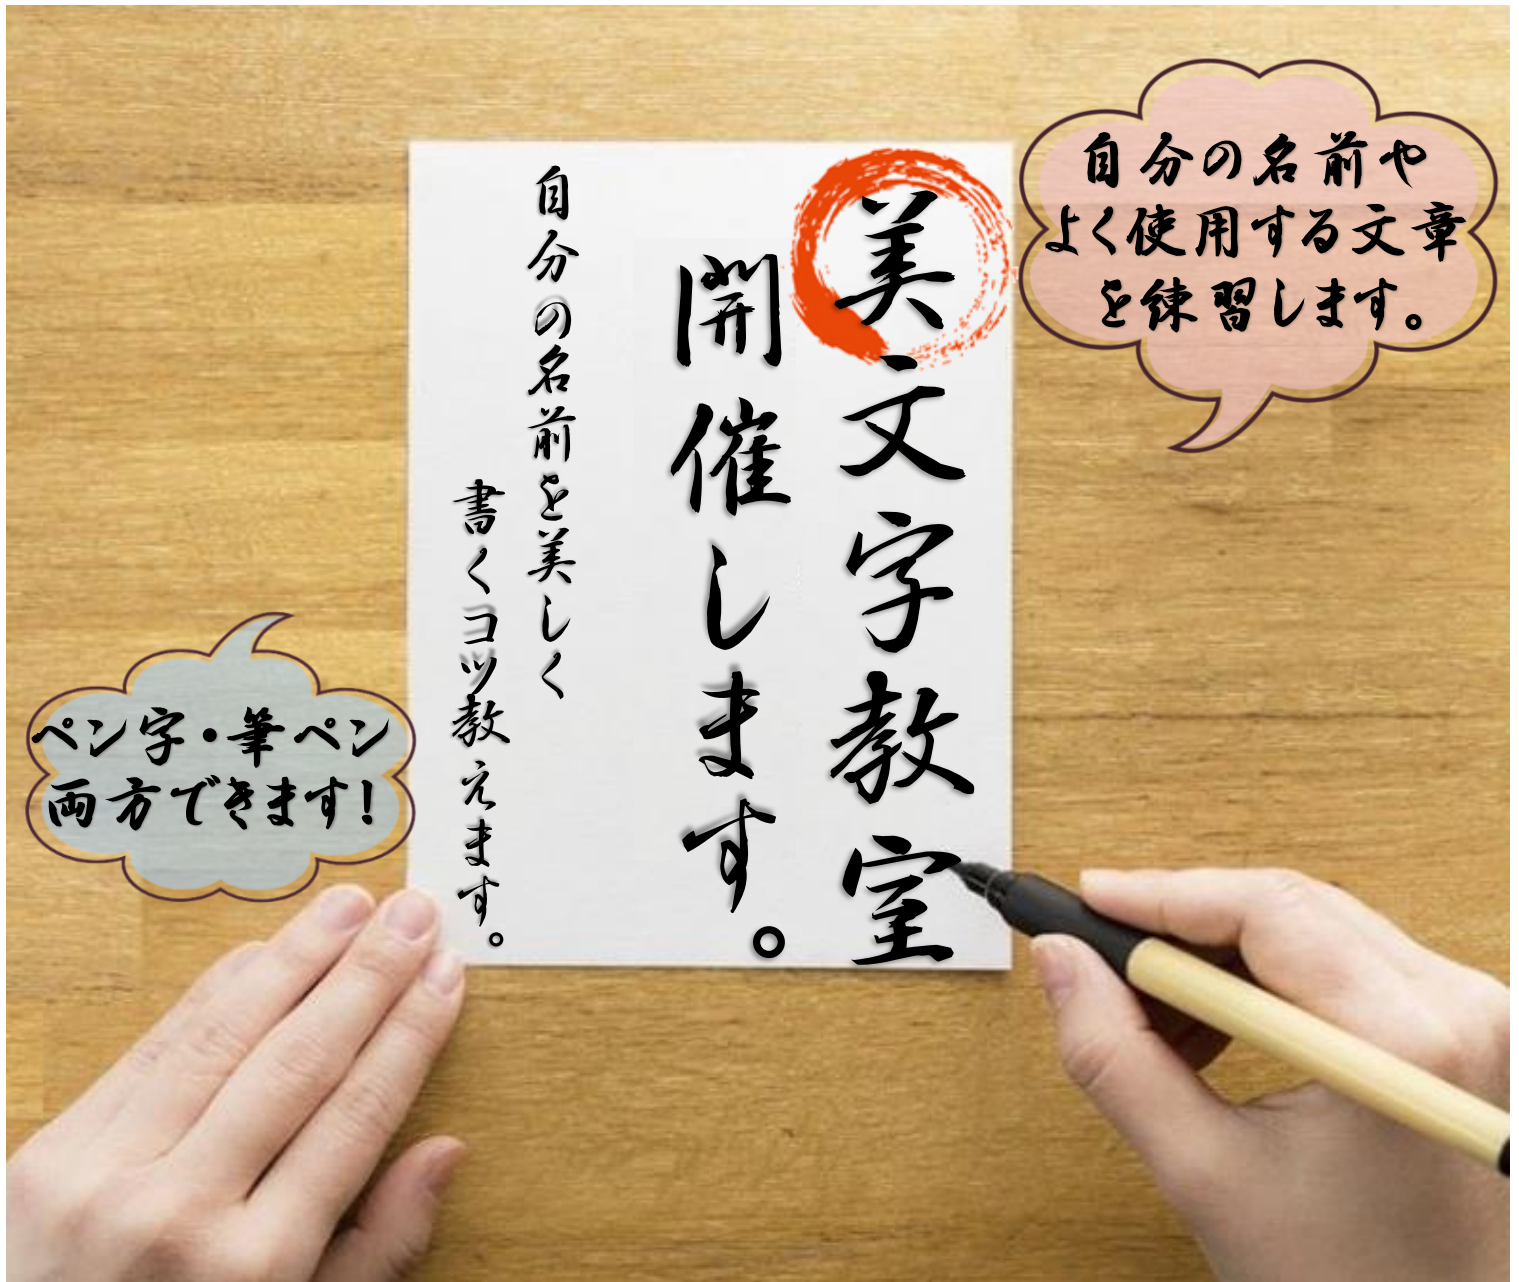 美文字教室
開催します。
自分の名前を美しく
書くコツ教えます。
自分の名前や
よく使用する文章
を練習します。
ペン字・筆ペン
両方できます!